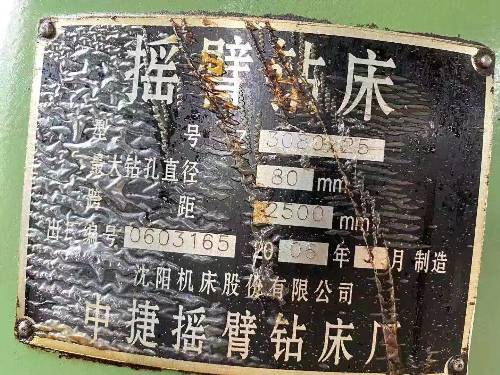 摇臂钻床
型号 Z3080×25
最大钻孔直径 80 mm
跨距 2500 mm
出厂编号 0603165 2006年3月制造
沈阳机床股份有限公司
中捷摇臂钻床厂